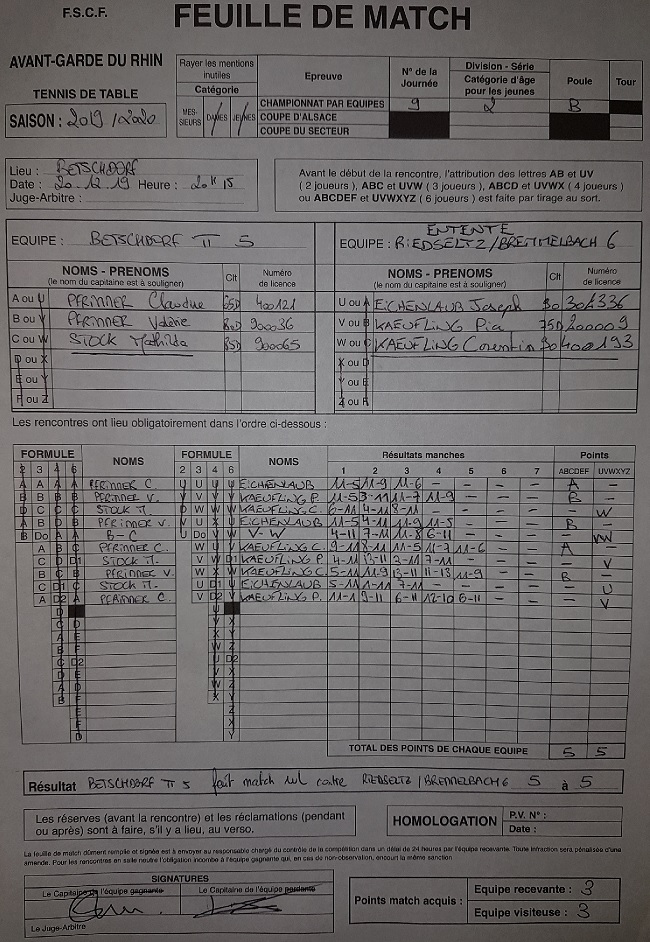 F.S.C.F.
FEUILLE DE MATCH
AVANT-GARDE DU RHIN
TENNIS DE TABLE
SAISON : 2019 / 2020
Rayer les mentions inutiles
Catégorie
MES-SIEURS DAMES JEUNES
Epreuve
N° de la Journée
Division - Série
Catégorie d'âge pour les jeunes
Poule
Tour
CHAMPIONNAT PAR EQUIPES 9 2 B
COUPE D'ALSACE
COUPE DU SECTEUR
Lieu : BETSCHDORF
Date : 20.12.19 Heure : 20H15
Juge-Arbitre :
Avant le début de la rencontre, l'attribution des lettres AB et UV
( 2 joueurs ), ABC et UVW ( 3 joueurs ), ABCD et UVWX ( 4 joueurs )
ou ABCDEF et UVWXYZ ( 6 joueurs ) est faite par tirage au sort.
EQUIPE : BETSCHDORF TT 5
ENTENTE
EQUIPE : RIEDSELTZ/BREMMELBACH 6
NOMS - PRENOMS
(le nom du capitaine est à souligner)
Clt
Numéro de licence
A ou U PFRIMMER Claudine 65D 400121
B ou V PFRIMMER Valérie 80D 900036
C ou W STOCK Mathilda 85D 900065
D ou X
E ou Y
F ou Z
NOMS - PRENOMS
(le nom du capitaine est à souligner)
Clt
Numéro de licence
U ou A EICHENLAUB Joseph 80 304336
V ou B KAEUFLING Pia 75D 200009
W ou C KAEUFLING Corentin 80 400193
X ou D
Y ou E
Z ou F
Les rencontres ont lieu obligatoirement dans l'ordre ci-dessous :
FORMULE NOMS FORMULE NOMS Résultats manches Points
2 3 4 6 2 3 4 6 1 2 3 4 5 6 7 ABCDEF UVWXYZ
A A A A PFRIMMER C. U U U U EICHENLAUB 11-5 11-9 11-6 - - - - A -
B B B B PFRIMMER V. V V V V KAEUFLING P. 11-5 3-11 11-7 11-9 - - - B -
STOCK M. KAEUFLING C. 6-11 4-11 8-11 - - - - - W
PFRIMMER V. EICHENLAUB 11-5 4-11 11-9 11-5 - - - B -
B-C V-W 4-11 7-11 11-8 6-11 - - - - VW
PFRIMMER C. KAEUFLING C. 9-11 8-11 11-5 11-7 11-6 - - A -
STOCK M. KAEUFLING P. - - - V
PFRIMMER V. KAEUFLING C. 5-11 11-9 11-13 11-9 - - B -
STOCK M. EICHENLAUB 5-11 1-11 7-11 - - - - - U
PFRIMMER C. KAEUFLING P. 6-11 12-10 6-11 - - - V
TOTAL DES POINTS DE CHAQUE EQUIPE 5 5
Résultat BETSCHDORF TT 5 fait match nul contre RIEDSELTZ/BREMMELBACH 6 5 à 5
Les réserves (avant la rencontre) et les réclamations (pendant
ou après) sont à faire, s'il y a lieu, au verso.
HOMOLOGATION
P.V. N° :
Date :
La feuille de match dûment remplie et signée est à envoyer au responsable chargé du contrôle de la compétition dans un délai de 24 heures par l'équipe recevante. Toute infraction sera pénalisée d'une
amende. Pour les rencontres en salle neutre l'obligation incombe à l'équipe gagnante qui, en cas de non-observation, encourt la même sanction
SIGNATURES
Le Capitaine de l'équipe gagnante
Le Capitaine de l'équipe perdante
Le Juge-Arbitre
Points match acquis :
Equipe recevante : 3
Equipe visiteuse : 3